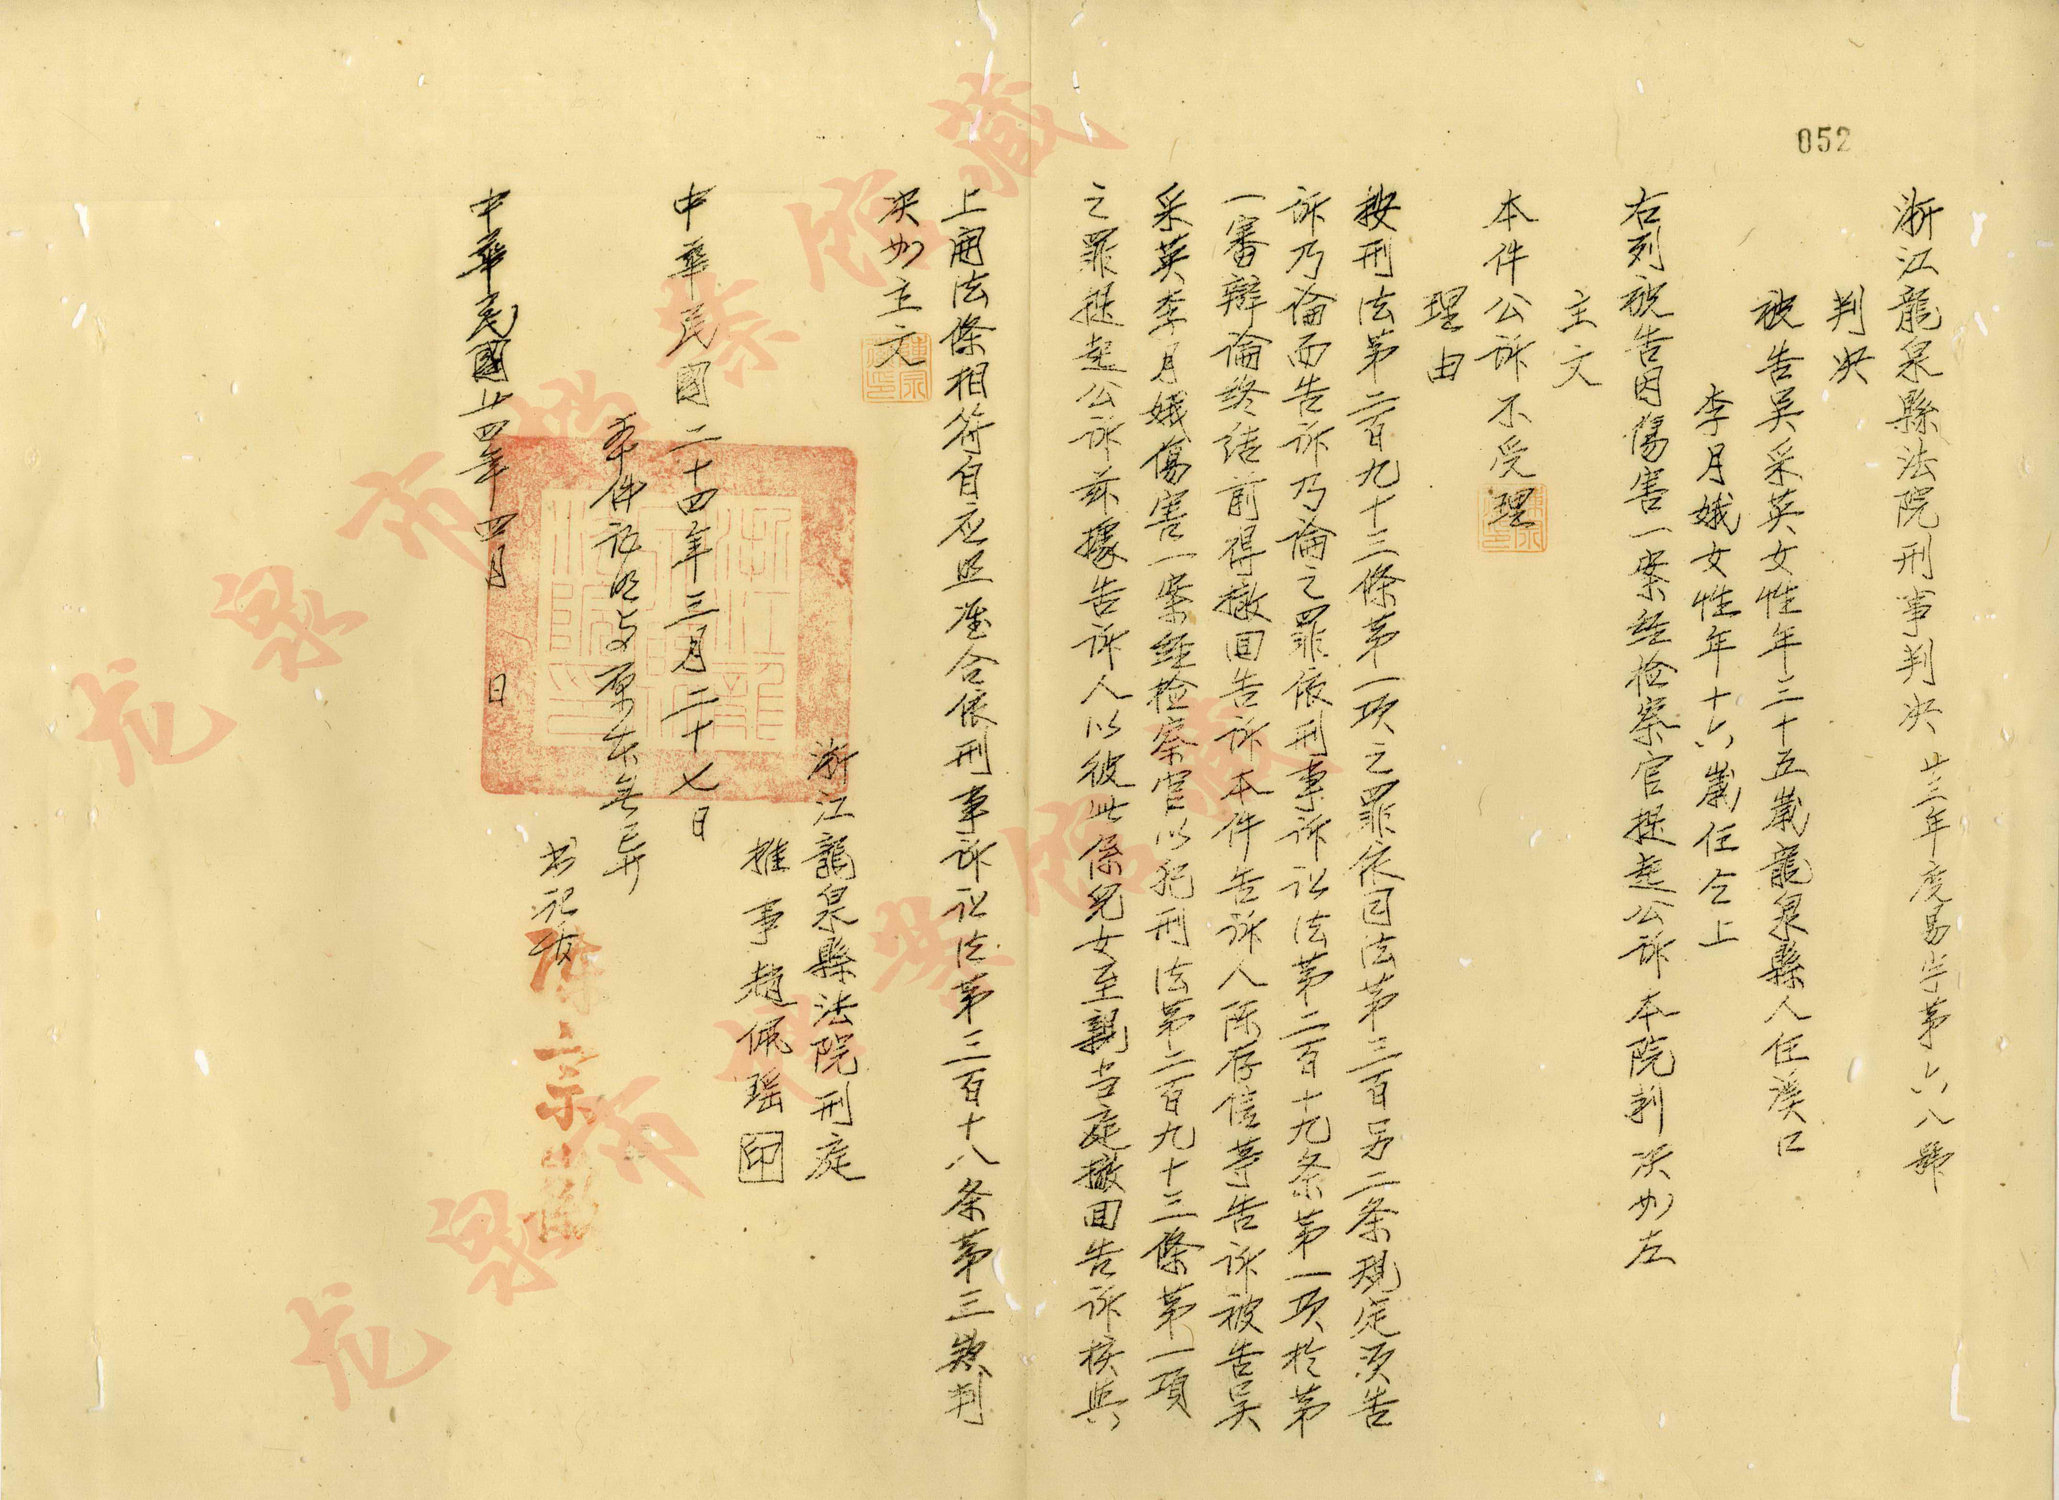 052
浙江龍泉縣法院刑事判決 廿三年度易字第六八號
判決
被告吳采英女性年二十五歲龍泉縣人住溪口
李月娥女性年十六歲住仝上
右列被告因傷害一案經检察官提起公诉本院判决如左
主文
本件公诉不受理
理由
按刑法第二百九十三條第一项之罪依同法第三百另二条規定须告
诉乃論而告诉乃論之罪依刑事诉讼法第二百十九条第一项於第
一審辯論終结前得撤回告诉本件告诉人陈存信等告诉被告吴
采英李月娥傷害一案經检察官以犯刑法第二百九十三條第一項
之罪提起公诉兹據告诉人以彼此係兒女至親当庭撤回告诉核與
上開法條相符自应照准合依刑事诉讼法第三百十八条第三款判
决如主文
浙江龍泉縣法院刑庭
推事趙佩瑶印
中華民國二十四年三月二十七日
本件证明与原本無异
书记官
中華民國廿四年四月 日
龙泉市档案馆藏
龙泉市档案馆藏